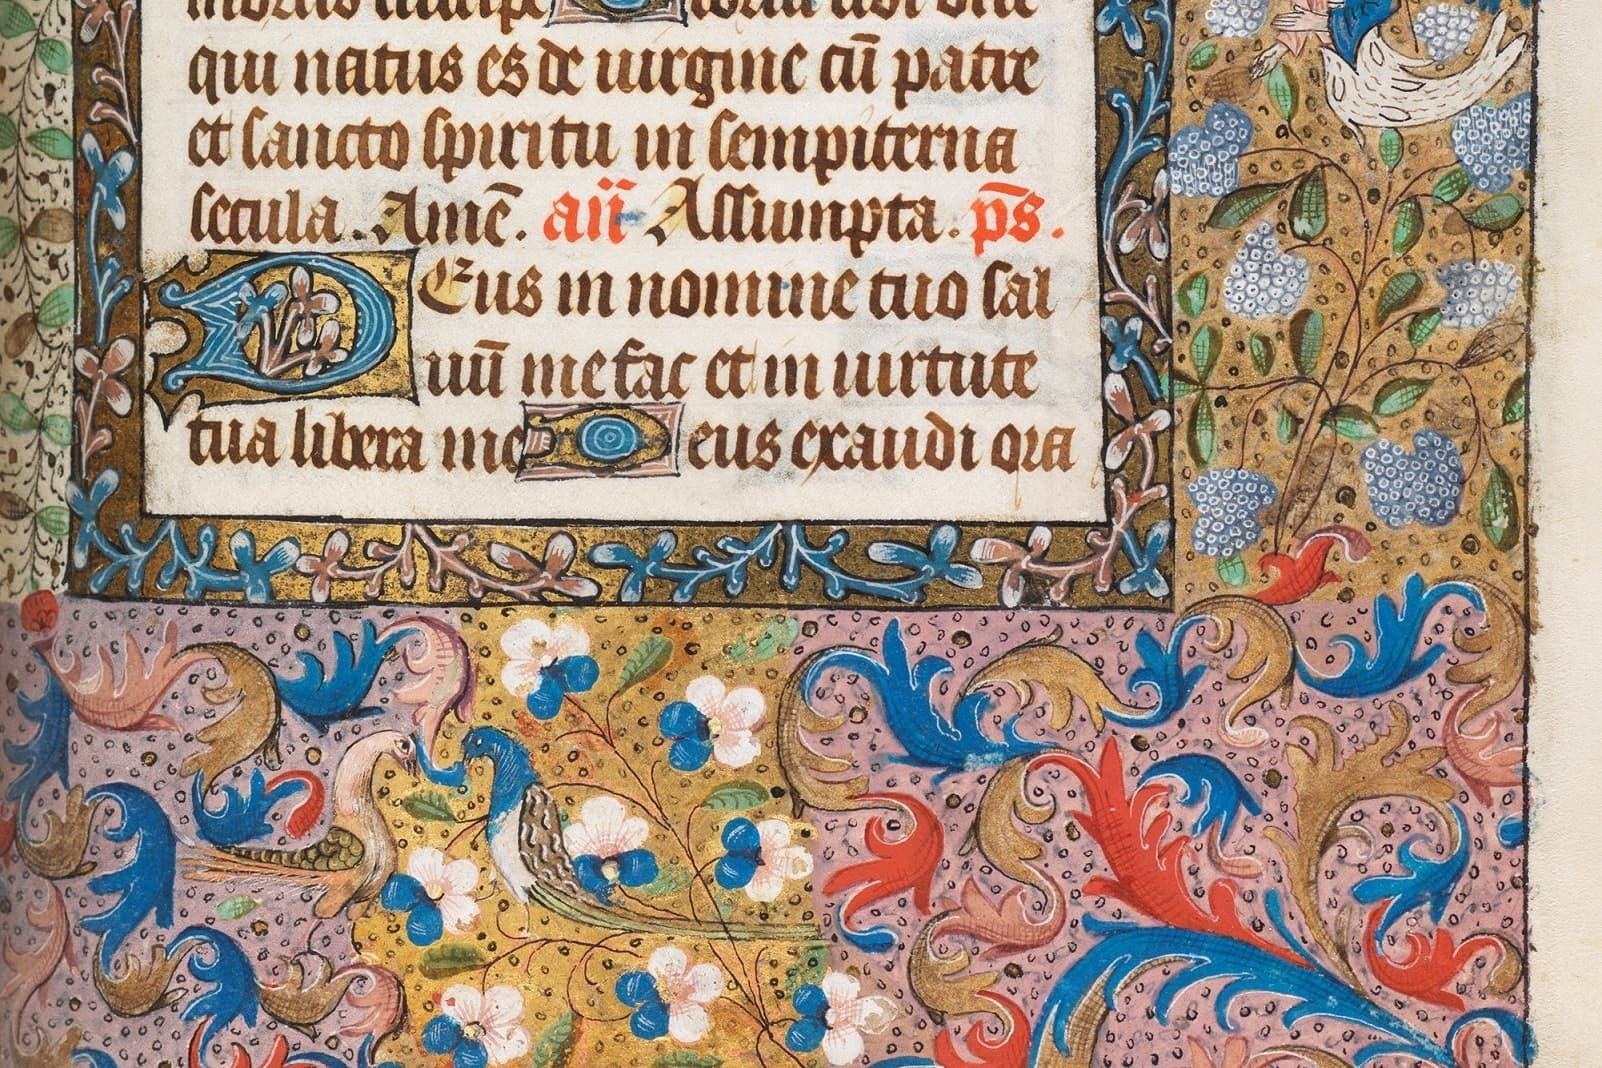 qui natus es de uirgine cū patre
et sancto spiritu in sempiterna
secula. Amē. añ Assumpta. ps̄.
DEus in nomine tuo sal
uū me fac et in uirtute
tua libera me Deus exaudi ora